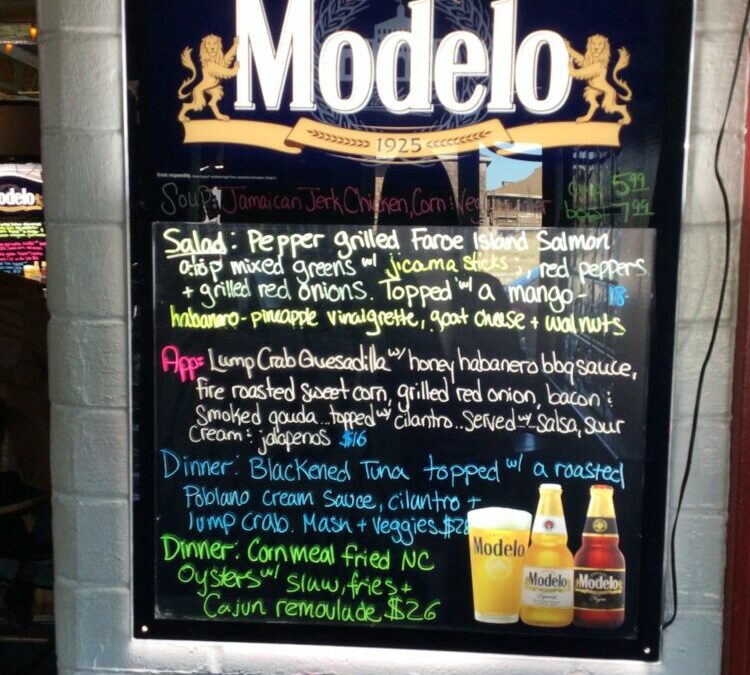 Modelo
1925
Drink responsibly.
Soup: Jamaican Jerk Chicken, Corn
5.99
7.99
Salad: Pepper grilled Faroe Island Salmon
atop mixed greens w/ jicama sticks, red peppers
+ grilled red onions. Topped w/ a mango- 18-
habanero-pineapple vinaigrette, goat cheese + walnuts
App: Lump Crab Quesadilla w/ honey habanero bbq sauce,
fire roasted sweet corn, grilled red onion, bacon &
Smoked gouda...topped w/ cilantro...Served w/ salsa, sour
cream & jalapenos $16
Dinner: Blackened Tuna topped w/ a roasted
Poblano cream sauce, cilantro +
lump crab. Mash + Veggies
Dinner: Cornmeal fried NC
Oysters w/ slaw, fries +
Cajun remoulade, $26
Modelo
Modelo
Modelo
Modelo